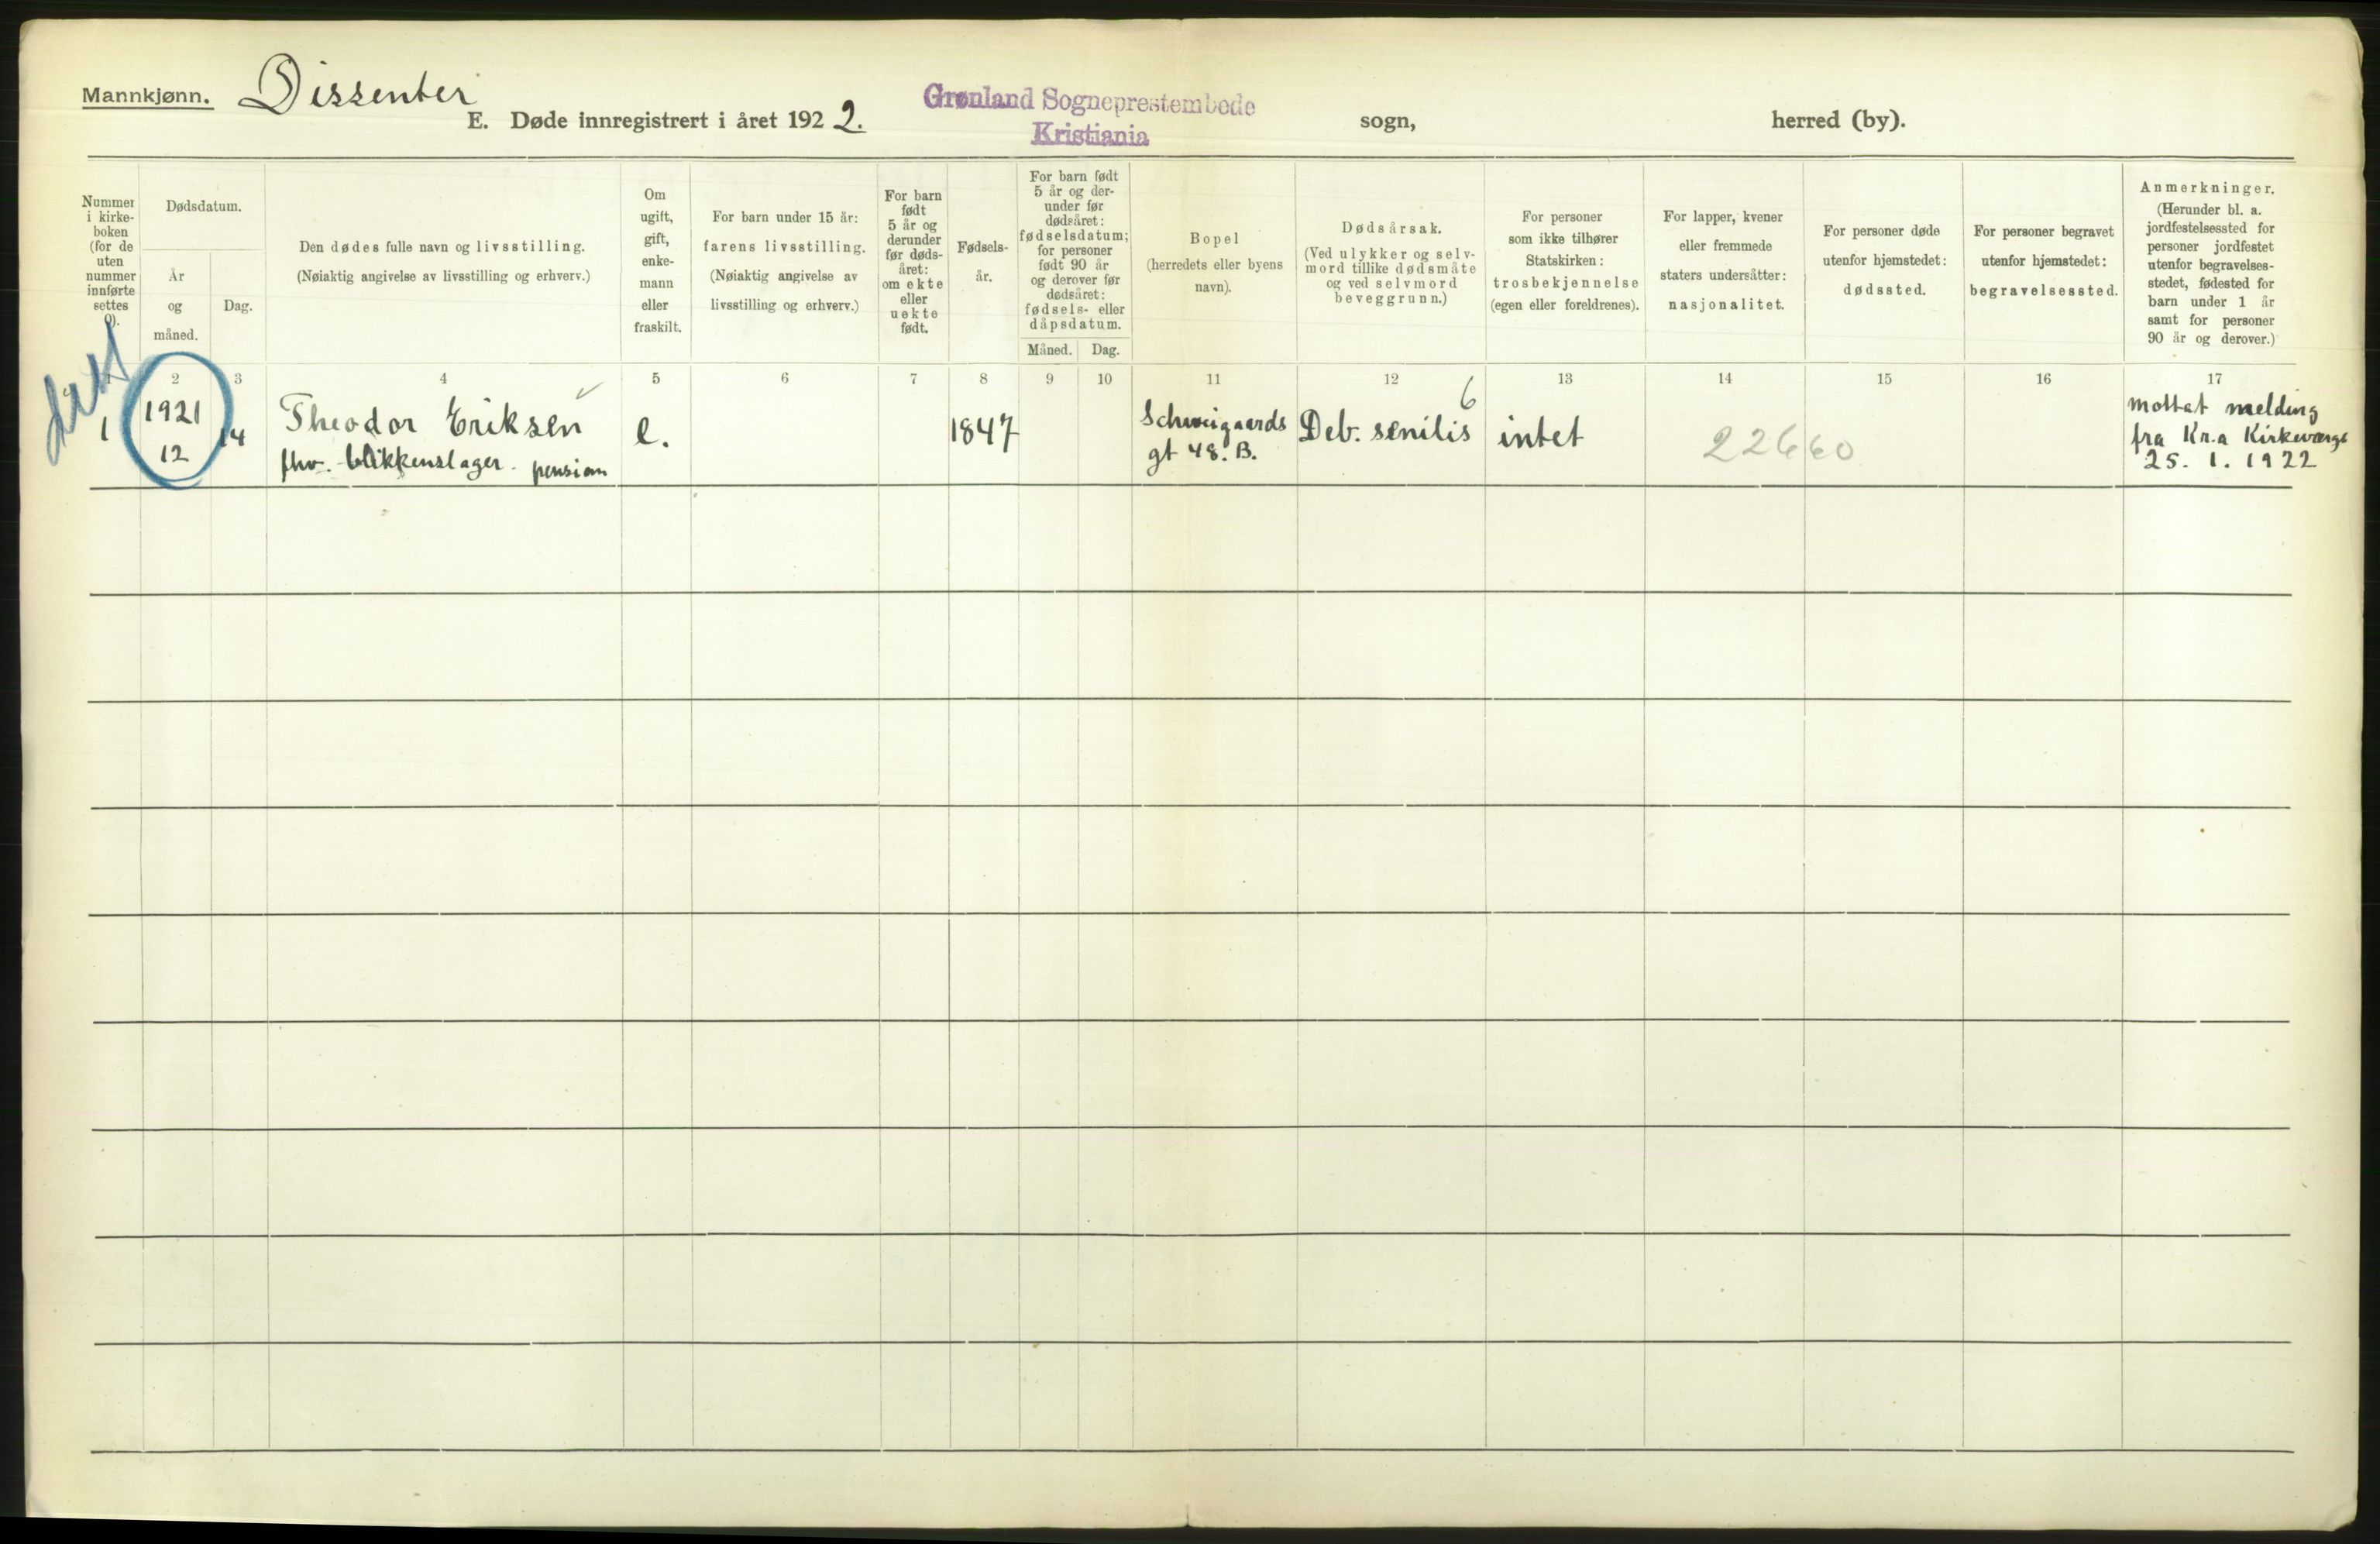 Mannkjønn. Dissenter
E. Døde innregistrert i året 1922.
Grønland Sogneprestembede
Kristiania
sogn,
herred (by).
Nummer
i kirke-
boken
(for de
uten
nummer
innførte
settes
0).
Dødsdatum.
År
og
måned.
Dag.
Den dødes fulle navn og livsstilling.
(Nøiaktig angivelse av livsstilling og erhverv.)
Om
ugift,
gift,
enke-
mann
eller
fraskilt.
For barn under 15 år:
farens livsstilling.
(Nøiaktig angivelse av
livsstilling og erhverv.)
For barn
født
5 år og
derunder
før døds-
året:
om ekte
eller
uekte
født.
Fødsels-
år.
For barn født
5 år og der-
under før
dødsåret:
fødselsdatum;
for personer
født 90 år
og derover før
dødsåret:
fødsels- eller
dåpsdatum.
Måned.
Dag.
Bopel
(herredets eller byens
navn).
Dødsårsak.
(Ved ulykker og selv-
mord tillike dødsmåte
og ved selvmord
beveggrunn.)
For personer
som ikke tilhører
Statskirken:
trosbekjennelse
(egen eller foreldrenes).
For lapper, kvener
eller fremmede
staters undersåtter:
nasjonalitet.
For personer døde
utenfor hjemstedet:
dødssted.
For personer begravet
utenfor hjemstedet:
begravelsessted.
Anmerkninger.
(Herunder bl. a.
jordfestelsessted for
personer jordfestet
utenfor begravelses-
stedet, fødested for
barn under 1 år
samt for personer
90 år og derover.)
1 2 3 4 5 6 7 8 9 10 11 12 13 14 15 16 17
1
1921
12
14
Theodor Eriksen
fhv. blikkenslager. pension
e.
1847
Schweigaards
gt 48. B.
6
Deb. senilis
intet
22660
mottat melding
fra Kr.a Kirkeværge
25. 1. 1922